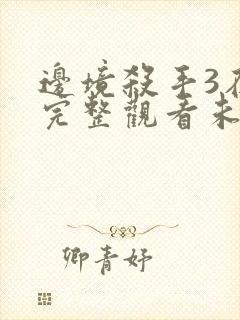 邊境殺手3在
完整觀看未
卿青妤